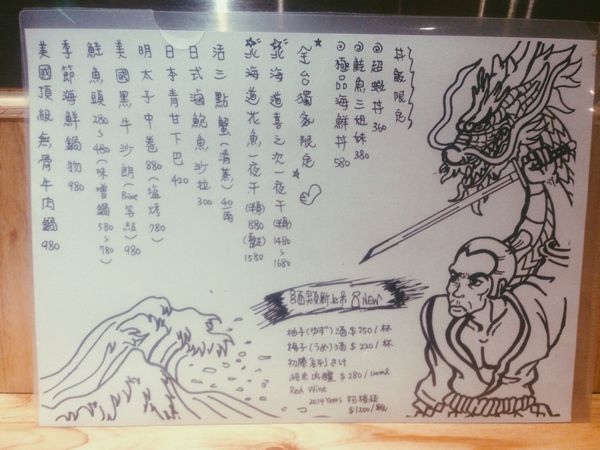 丼飯限定
◎超蝦丼 360
◎鮭魚三姐妹 380
◎極品海鮮丼 580
全台獨家限定
北海道喜之次一夜干(半隻)1480~1680
北海道花魚一夜干(半隻)880(整隻)1580
活三點蟹(清蒸)40/兩
日式滷鮑魚沙拉 300
日本青甘下巴 420
明太子中卷 880(塩烤780)
美國黑牛沙朗(Prime等級)980
鮭魚頭 280~480(味噌鍋580~780)
季節海鮮鍋物 980
美國頂級無骨牛肉鍋 980
酒類新上市 NEW
柚子(ゆず)酒 $250/杯
梅子(うめ)酒 $220/杯
純米吟釀 $280/
Red Wine
2014 Years
$1200/瓶